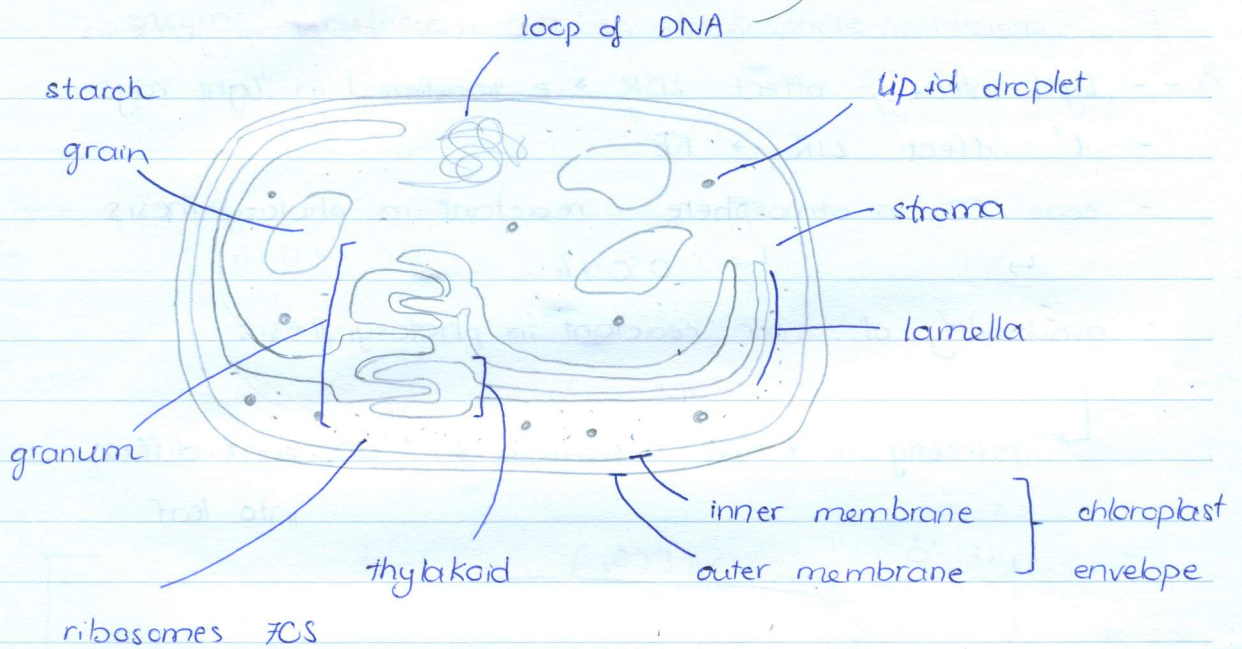 loop of DNA
starch
grain
lipid droplet
stroma
lamella
granum
inner membrane
outer membrane
chloroplast
envelope
thylakoid
ribosomes 70S